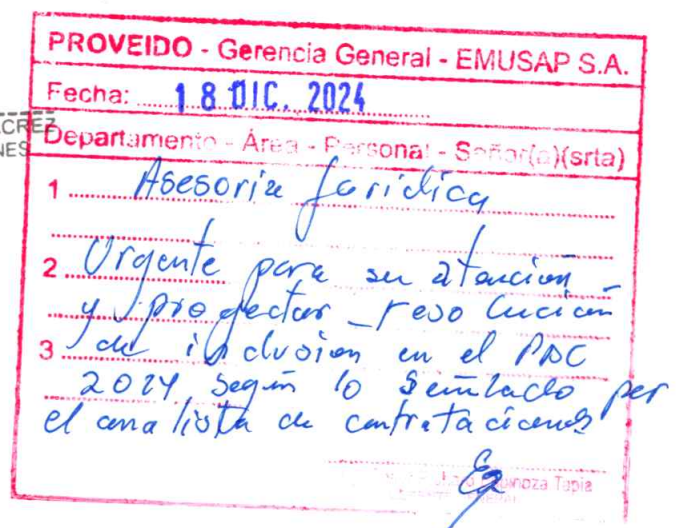 PROVEIDO - Gerencia General - EMUSAP S.A.
Fecha: 18 DIC. 2024
Departamento - Área - Personal - Señor(a)(srta)
1 Asesoria Juridica
2 Urgente para su atención
y proyectar resolución
3 de inclusion en el PAC
2024 según lo señalado por
el analista de contrataciones
Espinoza Tapia